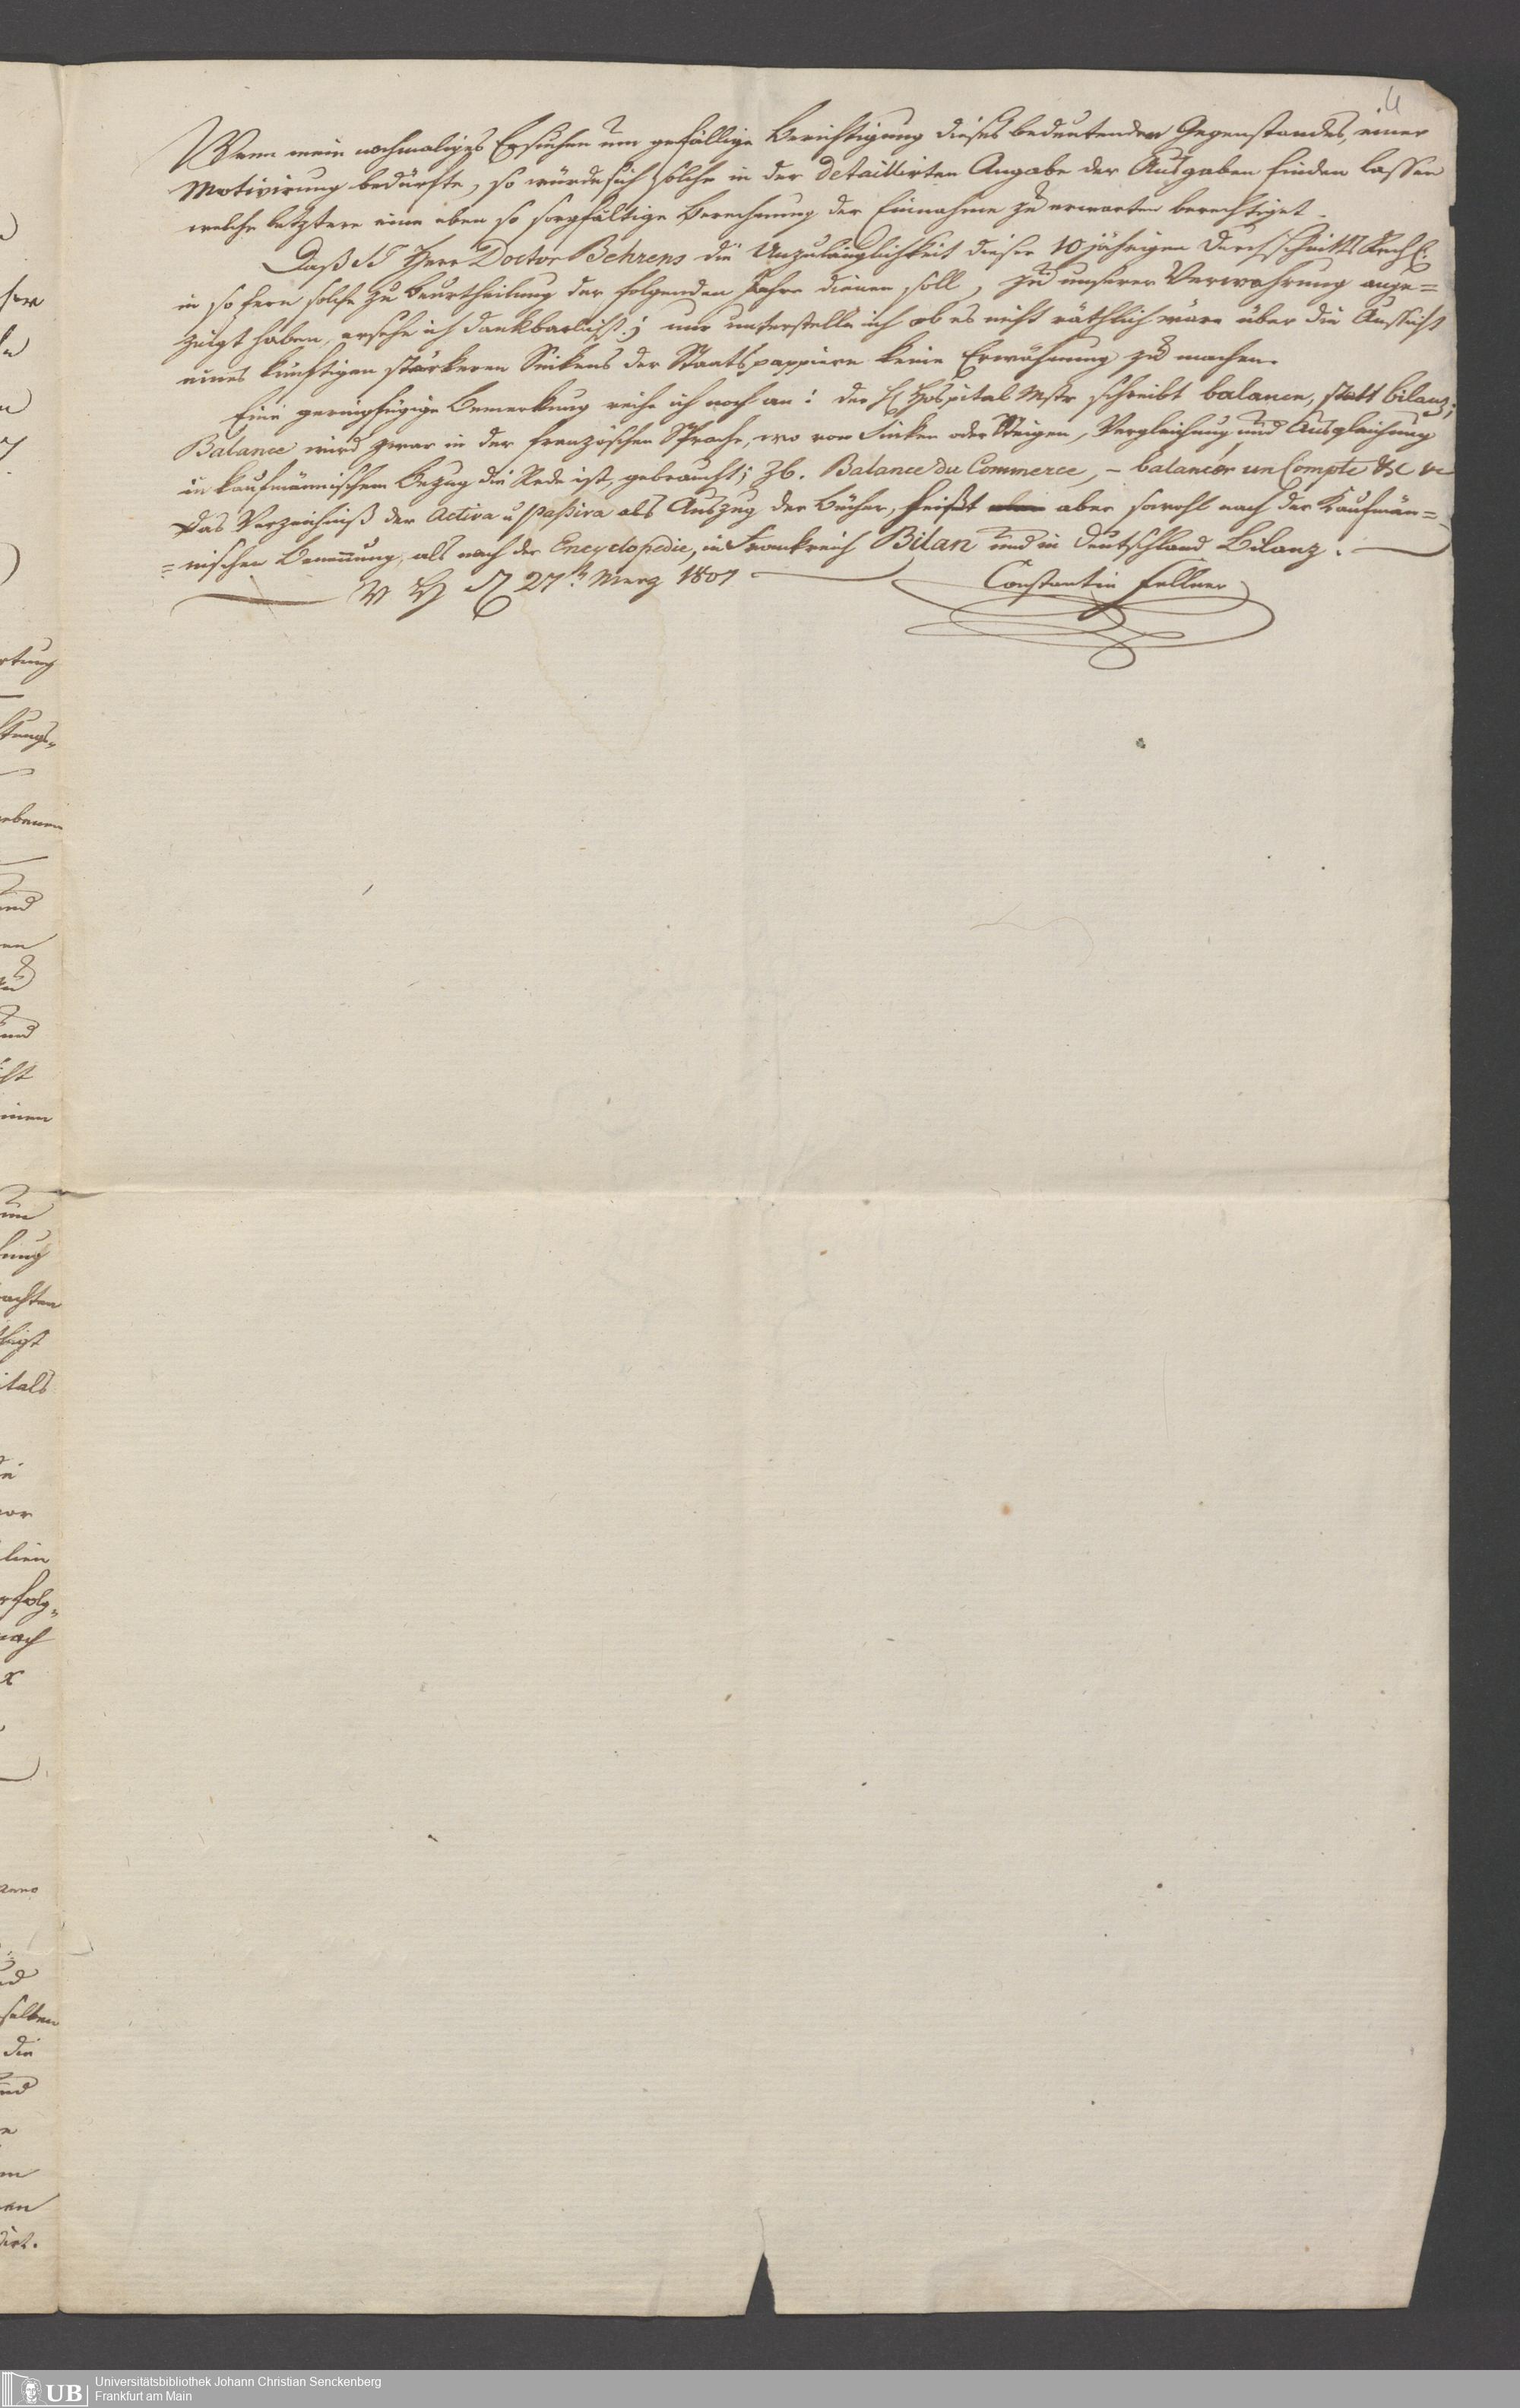 Wenn mein nochmaliges Ersuchen um gefällige Berichtigung dieses bedeutenden Gegenstandes, einer
Motivirung bedürfte, so würde sich solche in der detaillirten Angabe der Ausgaben finden lassen
welche letztere eine eben so sorgfältige Berechnung der Einnahme zu erwarten berechtiget.
Daß Herr Doctor Behrens die Unzulänglichkeit dieser 10 jährigen Durchschnitts
in so fern solche zu Beurtheilung der folgenden Jahre dienen soll, zu unserer Verwahrung ange=
zeigt haben, ersehe ich dankbarlichst; nur unterstelle ich ob es nicht räthlich wäre über die Aussicht
eines künftigen stärkeren Sinkens der Staatspappiere keine Erwähnung zu machen.
Eine geringfügige Bemerkung reihe ich noch an: der H Hospital Mstr schreibt balance, statt bilanz;
Balance wird zwar in der französchen Sprache, wo von Sinken oder Steigen, Vergleichung und Ausgleichung
in kaufmännischem Bezug die Rede ist, gebraucht; zb. Balance du Commerce, – balancer un Compte &c &c
Das Verzeichniß der Activa u Passiva als Auszug der Bücher, heißt aber sowohl nach der Kaufmän=
=nischen Benennung, als nach der Encyclopedie, in Frankreich Bilan und in Deutschland Bilanz.
27t Merz 1807
Constantin Fellner
Universitätsbibliothek Johann Christian Senckenberg
Frankfurt am Main
UB